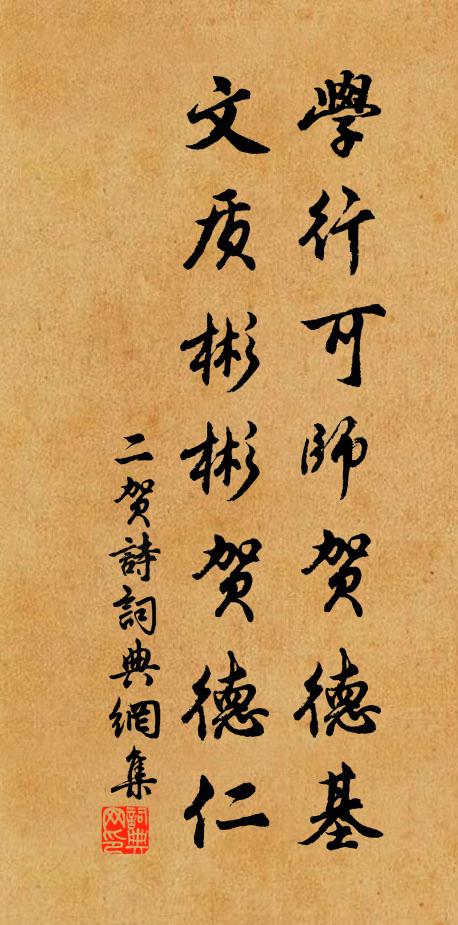 學行可師贺德基
文质彬彬贺德仁
二贺詩詞典網集
詞典網印